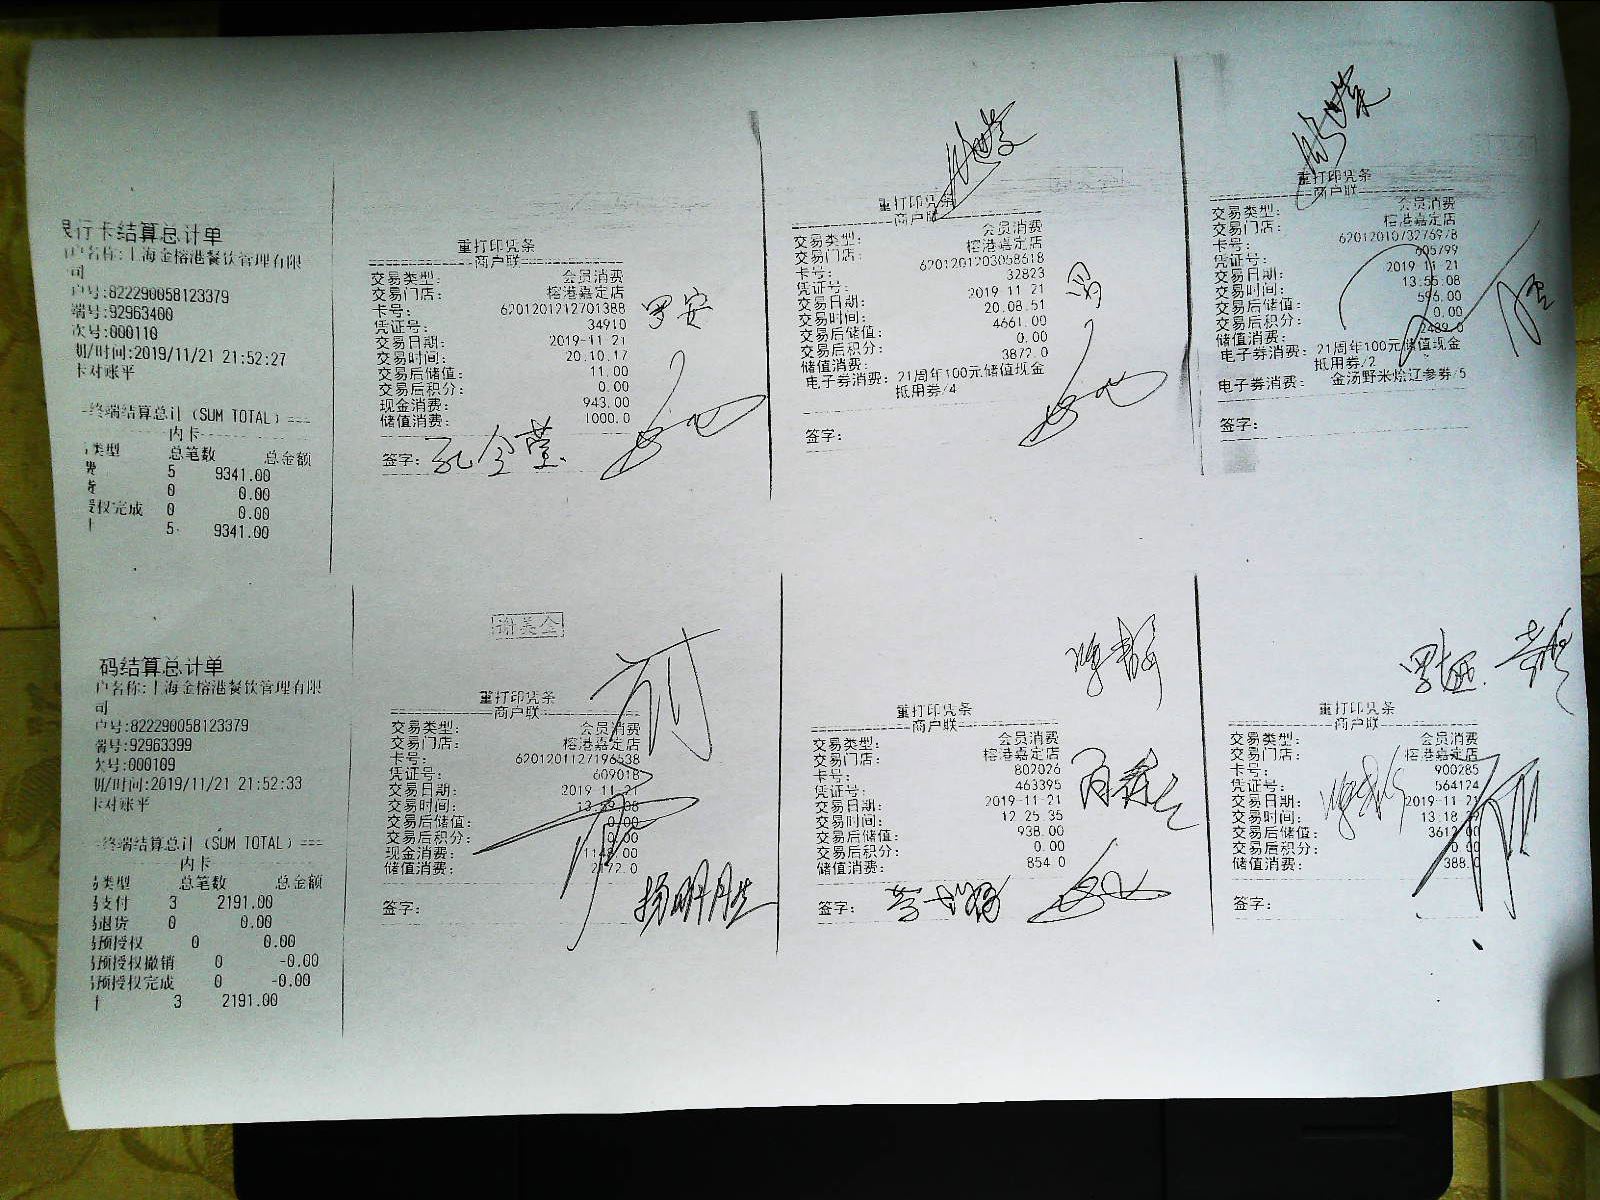 行卡结算总计单
户名称:上海金榕港餐饮管理有限
司
户号:822290058123379
端号:92963400
次号:000110
期/时间:2019/11/21 21:52:27
卡对账平
终端结算总计 (SUM TOTAL) ===
内卡
类型 总笔数 总金额
费 5 9341.00
0 0.00
授权完成 0 0.00
5 9341.00
重打印凭条
商户联
交易类型: 会员消费
交易门店: 榕港嘉定店
卡号: 6201201212701388
凭证号: 34910
交易日期: 2019-11-21
交易时间: 20.10.17
交易后储值: 11.00
交易后积分: 0.00
现金消费: 943.00
储值消费: 1000.0
签字: 孔令萱
罗安
重打印凭条
商户联
交易类型: 会员消费
交易门店: 榕港嘉定店
卡号: 6201201203058618
凭证号: 32823
交易日期: 2019-11-21
交易时间: 20.08.51
交易后储值: 4661.00
交易后积分: 0.00
储值消费: 3872.0
电子券消费: 21周年100元储值现金
抵用券/4
签字:
重打印凭条
商户联
交易类型: 会员消费
交易门店: 榕港嘉定店
卡号: 6201201073276978
凭证号: 605799
交易日期: 2019-11-21
交易时间: 13:55.08
交易后储值: 596.00
交易后积分: 0.00
储值消费: 2489.0
电子券消费: 21周年100元储值现金
抵用券/2
电子券消费: 金汤野米烩辽参券/5
签字:
码结算总计单
户名称:上海金榕港餐饮管理有限
司
户号:822290058123379
端号:92963399
次号:000109
期/时间:2019/11/21 21:52:33
卡对账平
终端结算总计 (SUM TOTAL) ===
内卡
类型 总笔数 总金额
码支付 3 2191.00
码退货 0 0.00
码预授权 0 0.00
码预授权撤销 0 -0.00
码预授权完成 0 -0.00
3 2191.00
谢美金
重打印凭条
商户联
交易类型: 会员消费
交易门店: 榕港嘉定店
卡号: 6201201127196538
凭证号: 609018
交易日期: 2019-11-21
交易时间:
交易后储值: 0.00
交易后积分: 0.00
现金消费:
储值消费: 2172.0
签字:
重打印凭条
商户联
交易类型: 会员消费
交易门店: 榕港嘉定店
卡号: 802026
凭证号: 463395
交易日期: 2019-11-21
交易时间: 12.25.35
交易后储值: 938.00
交易后积分: 0.00
储值消费: 854.0
签字:
重打印凭条
商户联
交易类型: 会员消费
交易门店: 榕港嘉定店
卡号: 900285
凭证号: 564124
交易日期: 2019-11-21
交易时间: 13.18
交易后储值: 3612.00
交易后积分: 0.00
储值消费: 388.0
签字: